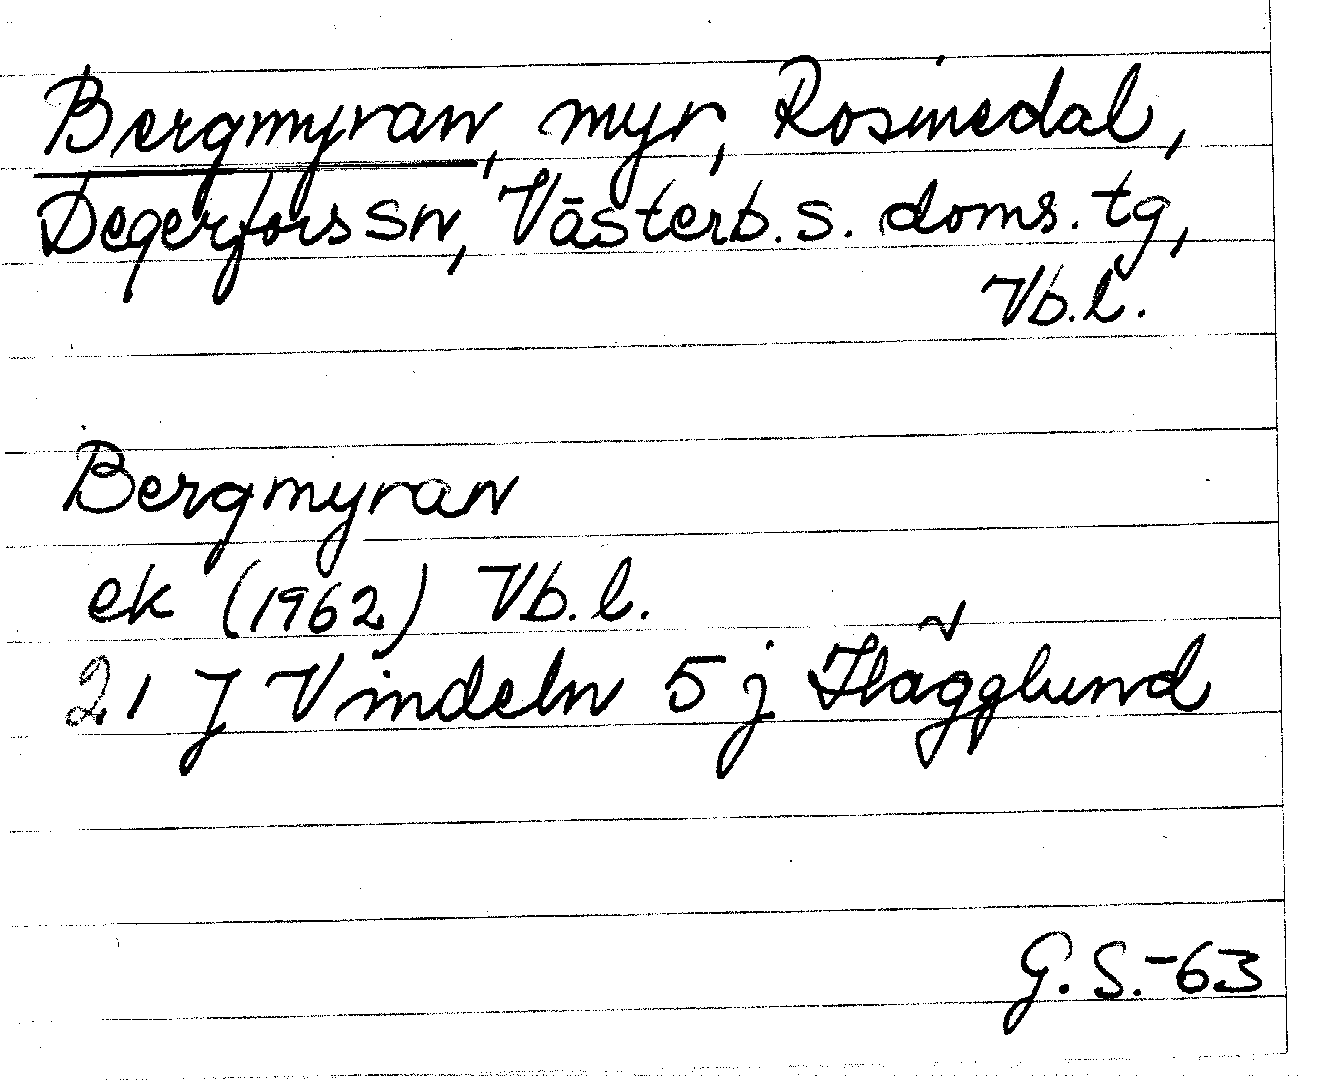 Bergmyran, myr, Rosinedal,
Degerfors sn, Västerb. s. doms. tg,
Vb.l.
Bergmyran
ek (1962) Vb.l.
21 J Vindeln 5 j Hägglund
G.S.-63